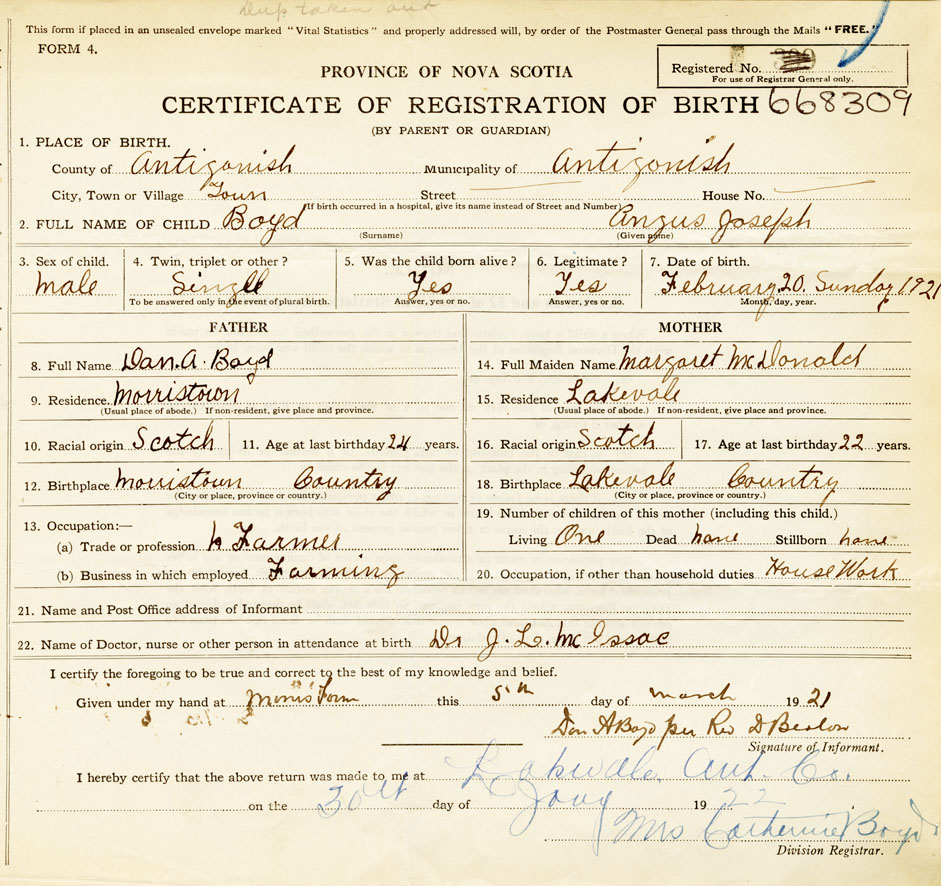 Dup taken out
This form if placed in an unsealed envelope marked "Vital Statistics" and properly addressed will, by order of the Postmaster General pass through the Mails "FREE."
FORM 4.
Registered No.
For use of Registrar General only.
PROVINCE OF NOVA SCOTIA
CERTIFICATE OF REGISTRATION OF BIRTH 668309
(BY PARENT OR GUARDIAN)
1. PLACE OF BIRTH.
County of Antigonish Municipality of Antigonish
City, Town or Village Town Street House No.
(If birth occurred in a hospital, give its name instead of Street and Number)
2. FULL NAME OF CHILD Boyd Angus Joseph
(Surname) (Given name)
3. Sex of child. 4. Twin, triplet or other? 5. Was the child born alive? 6. Legitimate? 7. Date of birth.
male Single Yes Yes February 20. Sunday 1921
To be answered only in the event of plural birth. Answer, yes or no. Answer, yes or no. Month, day, year.
FATHER MOTHER
8. Full Name Dan. A. Boyd 14. Full Maiden Name Margaret McDonald
9. Residence Morristown 15. Residence Lakevale
(Usual place of abode.) If non-resident, give place and province. (Usual place of abode.) If non-resident, give place and province.
10. Racial origin Scotch 11. Age at last birthday 24 years. 16. Racial origin Scotch 17. Age at last birthday 22 years.
12. Birthplace Morristown Country 18. Birthplace Lakevale Country
(City or place, province or country.) (City or place, province or country.)
13. Occupation:— 19. Number of children of this mother (including this child.)
(a) Trade or profession Farmer Living One Dead none Stillborn none
(b) Business in which employed Farming 20. Occupation, if other than household duties House Work
21. Name and Post Office address of Informant
22. Name of Doctor, nurse or other person in attendance at birth Dr J. L. McIssac
I certify the foregoing to be true and correct to the best of my knowledge and belief.
Given under my hand at this 5th day of march 1921
Dan A Boyd per Rev D
Signature of Informant.
I hereby certify that the above return was made to me at Lakevale. Ant. Co.
on the 30 day of 1922
Mrs Catherine Boyd
Division Registrar.